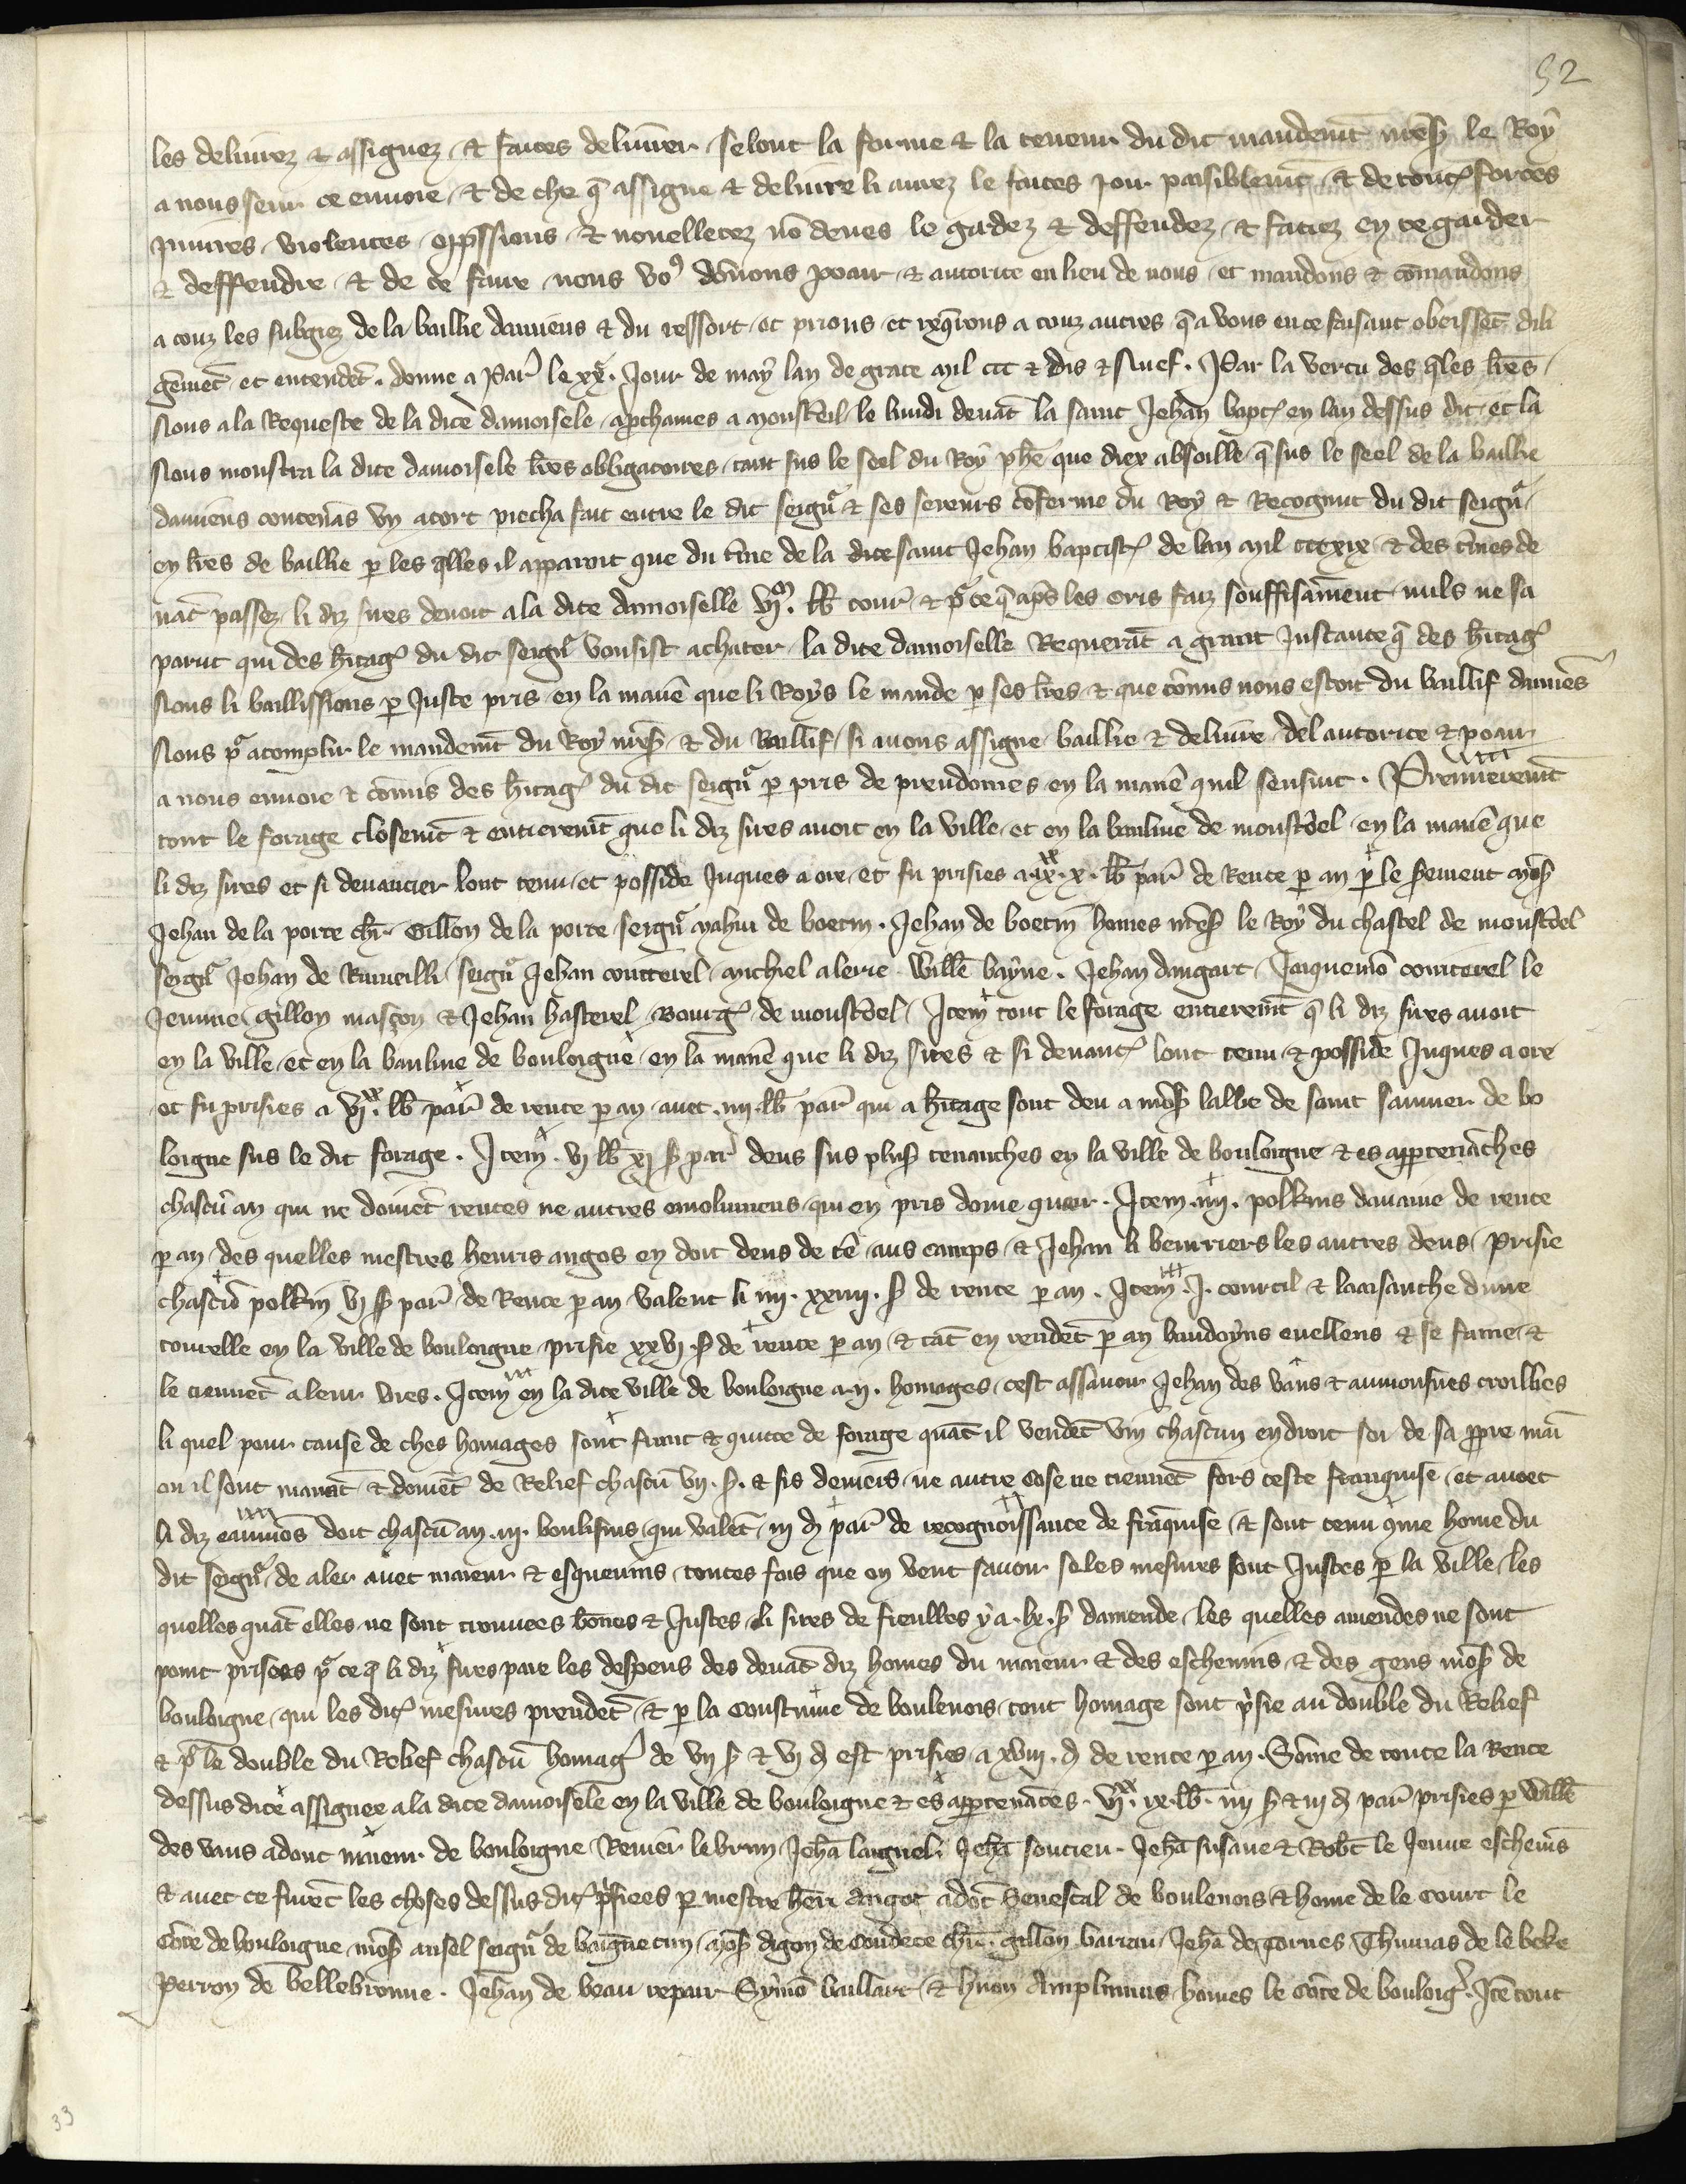 52
les delivrez & assignez & faites delivrer selonc la forme & la teneur du dit mandemt mess le Roy
a nous seur ce envoie & de che q assigne & delivre li aurez le faites joir paisiblemt & de toutes forces
injures violences oppssions & nouelletez no deues le gardez & deffendez & faciez en ce garder
& deffendre & de ce faire nous vo9 donons pooir & autorite en lieu de nous et mandons & comandons
a touz les subgiez de la baillie damiens & du ressort et prions et requons a touz autres q a vous en ce faisant obeissent dili
gemet et entendet. donne a Par le xxe. jour de may lan de grace mil ccc & dis & nuef. Par la vertu des qles lres
Nous a la Requeste de la dice damoisele aprchames a monsteul le lundi devat la saint Jehan bapt en lan dessus dit et la
Nous monstra la dite damoisele lres obligatoires tant sus le seel du Roy phe que diex absoille q sus le seel de la baillie
damiens contenas un acort piecha fait entre le dit seignr & ses sereurs coferme du Roy & Recognut du dit seignr
en lres de baillie p les qlles il apparoit que du tme de la dite saint Jehan baptist de lan mil cccxix & des tmes de
vat passez li diz sires devoit a la dite damoiselle lb tour & pr ce q aps les cris faiz souffisament nuls ne sa
parut qui des hitag du dit seignr vousist achater la dite damoiselle Requerat a grant instance q des hitag
Nous li baillissions p juste pris en la manie que li Roys le mande p ses lres & que comis nous estoit du baillif damiens
Nous pr acomplir le mandemt du Roy mess & du Baillif si avons assigne baillie & delivre del autorite & pooir
a nous envoie & comis des hitag du dit seignr p pris de preudomes en la manie quil sensuit. Premieremt
tout le forage closemt & entieremt que li diz sires avoit en la ville et en la banliue de monsteel en la manie que
li diz sires et si devancier lont tenu et posside juques a ore et fu prisies a ix. x. lb par de Rente p an p le serement mess
Jehan de la porte chr Gillon de la porte seignr mahiu de boetin. Jehan de boetin homes mess le Roy du chastel de monsteel
seignr Jehan de Rumilli seignr Jehan coutterel michiel alerie Wille bayne. Jehan dangart Jaquemo coutterel le
jeune gillon mascon & Jehan hasterel Bourg de monsteel Item tout le forage entieremt q li diz sires avoit
en la ville et en la banliue de bouloigne en la manie que li diz sires & si devant lont tenu & posside juques a ore
et fu prisies a vi. lb par de rente p an avec iiii lb par qui a hitage sont deu a mess labbe de saint saumer de bo
loigne sus le dit forage. Item. vi lb xi s par deus sus plus tenanches en la ville de bouloigne & es appertenaches
chascun an qui ne doivet rentes ne autres emolumens qui en pris doive queir. Item. iiii. polkins davaine de rente
p an des quelles mestres henris angos en doit deus de te aus camps & Jehan li beurriers les autres deus prisie
chascun polkin vi s par de Rente p an valent li iiii. xxiiii. s de rente p an. Item. i. courtil & laaisanche dune
tourelle en la ville de bouloigne prisie xxvi s de rente p an & tat en rendet p an baudoyns evellens & se fame &
le tienet a leur vies. Item en la dite ville de bouloigne a ii. homages cest assavoir Jehan des vaus & aumonsnes croilles
li quel pour cause de ches homages sont franc & quitte de forage quat il vendet vin chascun endroit soi de sa ppre main
ou il sont manat & doivet de Relief chascu vii. s. & sis deniers ne autre cose ne tienent fors ceste franquise et avoec
li diz eaumos doit chascu an iii boulisins qui valet iii d par de recognoissance de franquise & sont tenu 9me home du
dit seignr de aler avec maieur & esquevins toutes fois que on veut savoir se les mesures sont justes p la ville les
quelles quat elles ne sont trouvees bones & justes li sires de fieulles y a. lx. s damende les quelles amendes ne sont
point prisees pr ce q li diz sires paie les despens des devat diz homes du maieur & des eschevins & des gens mess de
bouloigne qui les dit mesures prendet & p la coustume de boulenois tout homage sont psie au double du Relief
& p le double du Relief chascu homag de vii s & vi d est prisies a xviii. d de rente p an. Some de toute la Rente
dessus dite assignee a la dite damoisele en la ville de bouloigne & es appertenaces. vi. ix. lb. iiii s & iii d par prisies p Wille
des vaus adonc maieur de bouloigne Renier lebrun Jeha laignel Jeha soutieu Jeha susane & Robt le jeune eschevis
& avec ce furet les choses dessus dit psiees p mestre heri angot adoc Senescal de boulenois & home de le court le
Cote de bouloigne mess ansel seignr de baignetun mess digon de Condete chr. gillon barrau Jeha de tornes Thumas de le beke
Perron de bellebronne. Jehan de beau repair Symo baillart & huon Amplumus homes le Cote de bouloig. Ite tout
33